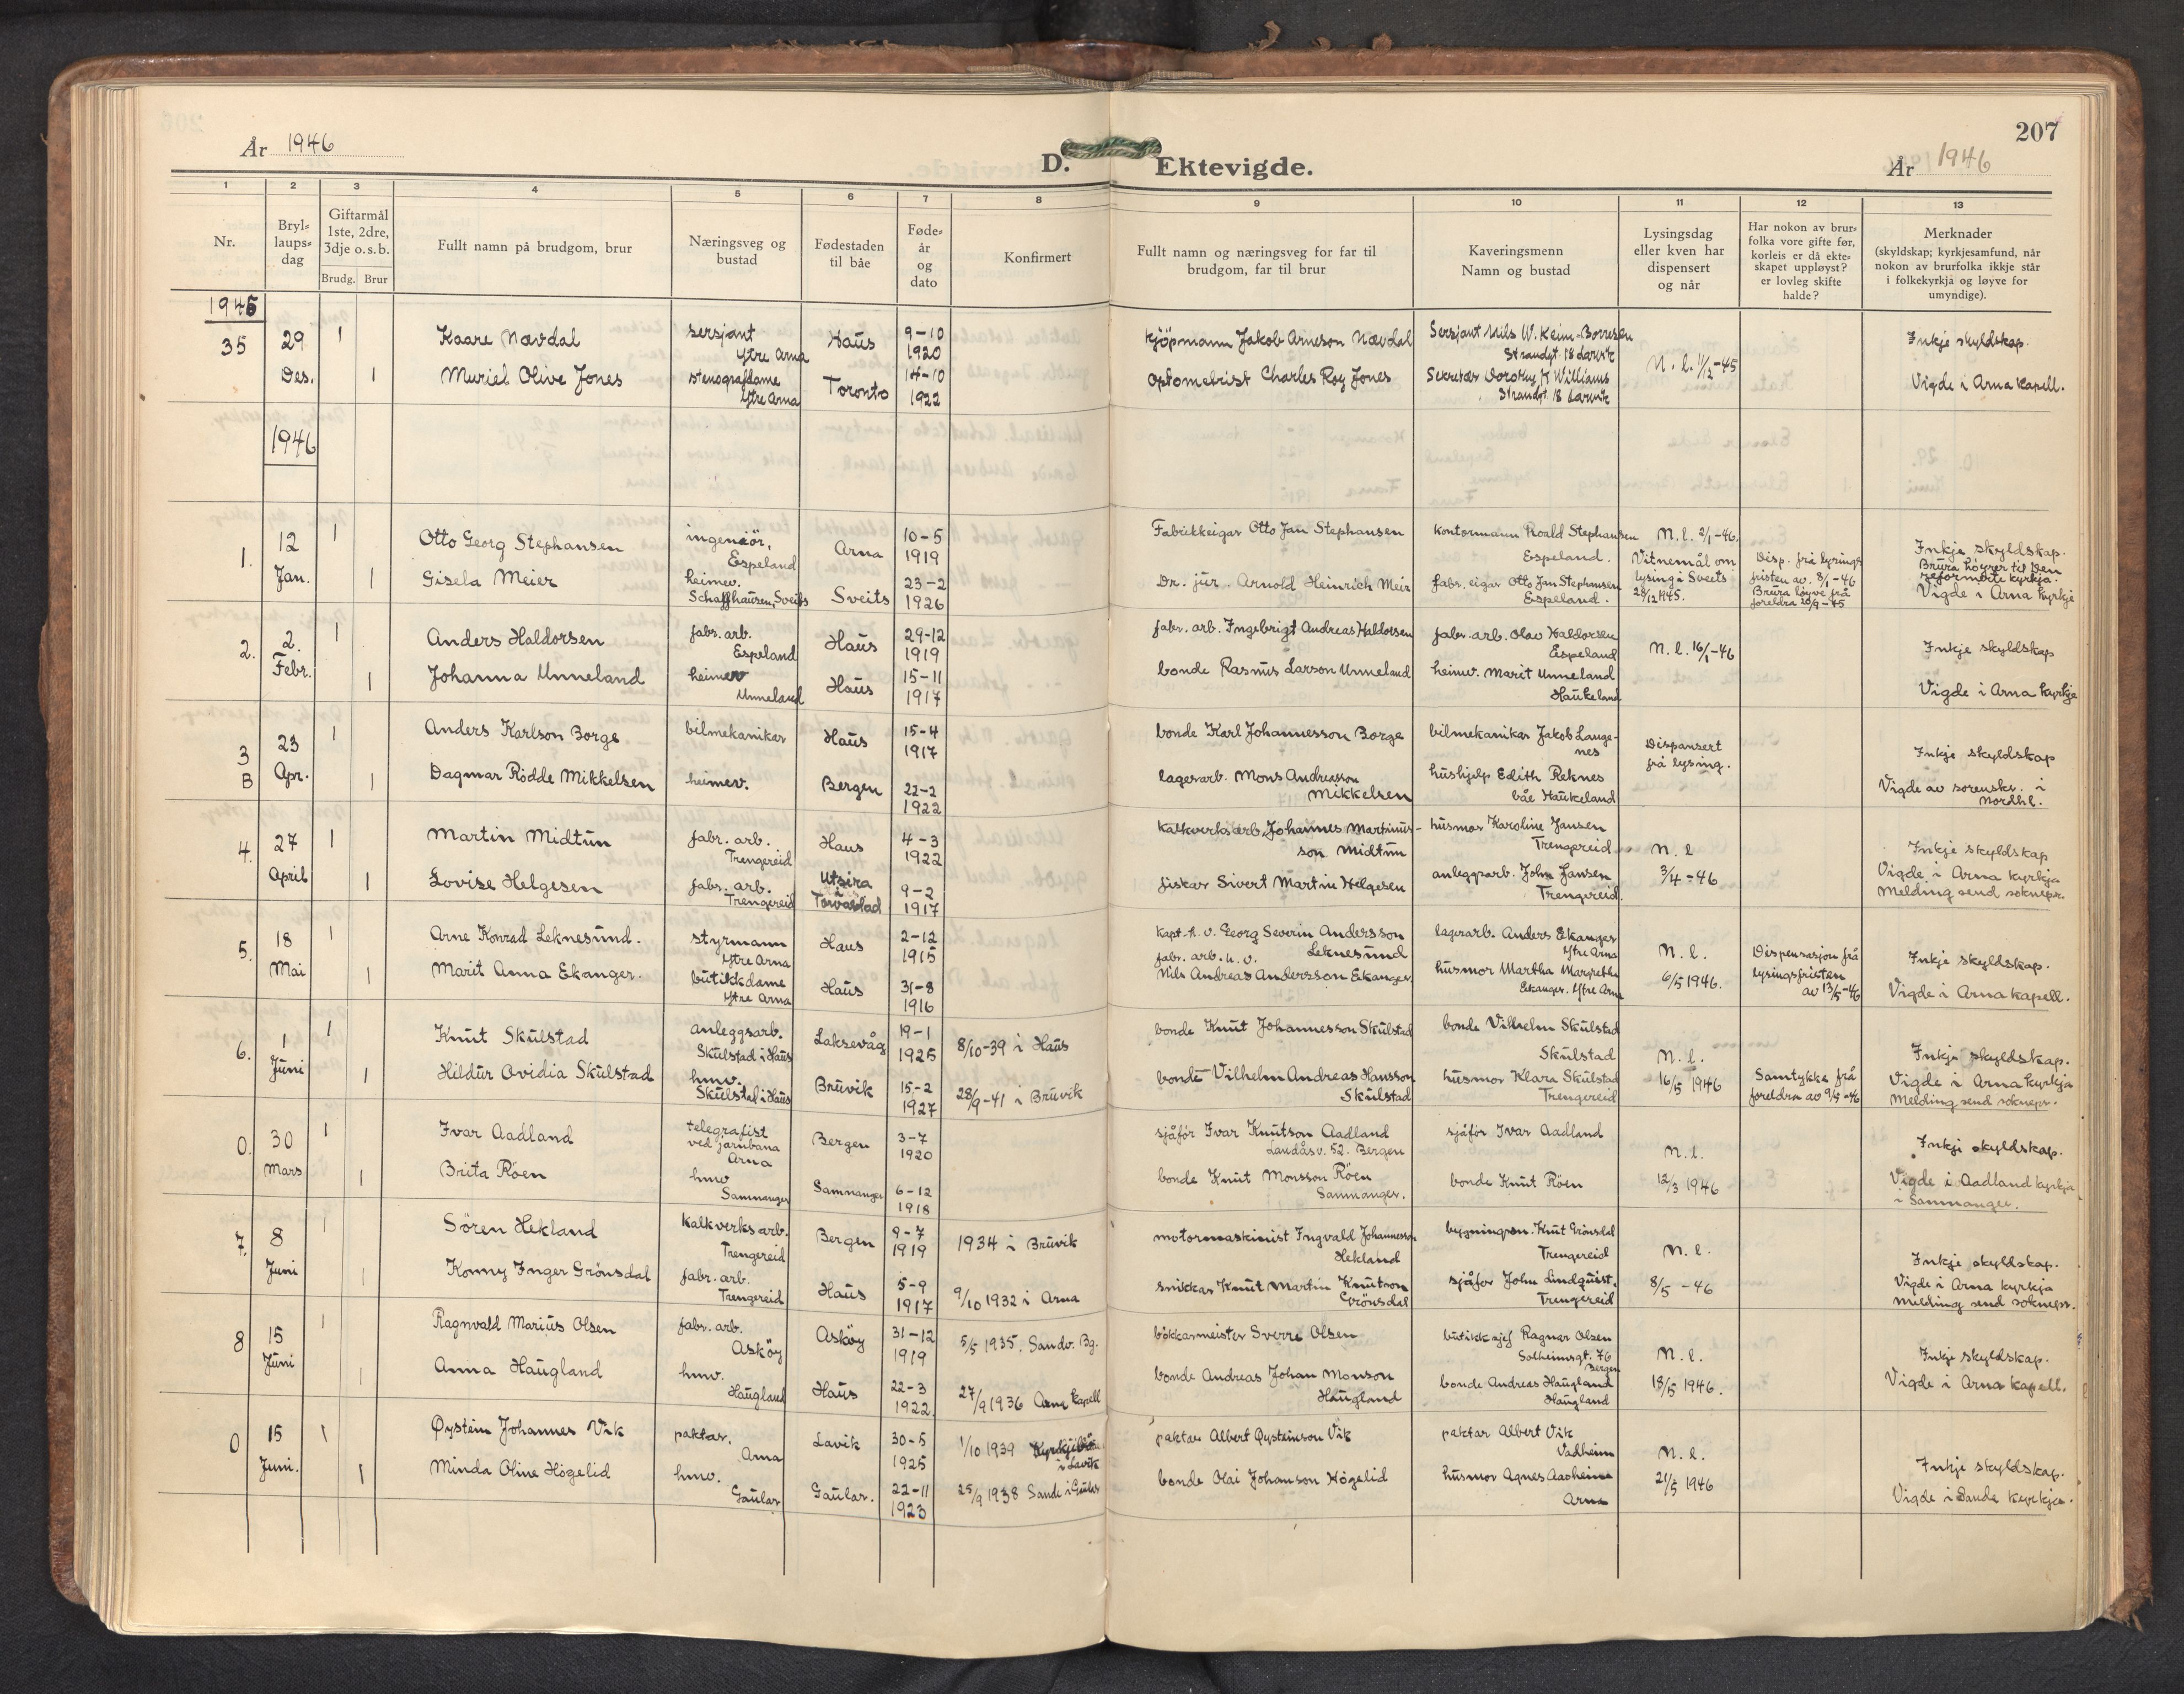 207
År 1946
D. Ektevigde.
År 1946
1 2 3 4 5 6 7 8 9 10 11 12 13
Nr.
Bryl-
laups-
dag
Giftarmål
1ste, 2dre,
3dje o.s.b.
Brudg. Brur
Fullt namn på brudgom, brur
Næringsveg og
bustad
Fødestaden
til båe
Føde-
år
og
dato
Konfirmert
Fullt namn og næringsveg for far til
brudgom, far til brur
Kaveringsmenn
Namn og bustad
Lysingsdag
eller kven har
dispensert
og når
Har nokon av brur-
folka vore gifte før,
korleis er då ekte-
skapet uppløyst?
er lovleg skifte
halde?
Merknader
(skyldskap; kyrkjesamfund, når
nokon av brurfolka ikkje står
i folkekyrkja og løyve for
umyndige).
1945
35
29
Des.
1
Kaare Nævdal
sersjant
Ytre Arna
Haus
9-10
1920
kjöpmann Jakob Arneson Nævdal
Sersjant Nils W. Keim-Borresen
Strandgt. 18 Larvik
N. l. 1/12-45
Inkje skyldskap.
1
Muriel Olive Jones
stenografdame
Ytre Arna
Toronto
14-10
1922
optometrist Charles Roy Jones
Sekretær Dorothy K Williams
Strandgt 18 Larvik
Vigde i Arna kapell.
1946
1.
12
Jan.
1
Otto Georg Stephansen
ingeniör,
Espeland
Arna
10-5
1919
Fabrikkeigar Otto Jan Stephansen
kontormann Roald Stephansen
Espeland.
N. l. 2/1-46.
Vitnemål om
lysing i Sveits
28/12 1945.
Disp. frå lysings
fristen av. 8/1-46
Brura löyve frå
foreldra 20/9-45
Inkje skyldskap.
Brura höyrer til Den
reformerte kyrkja.
Vigde i Arna kyrkje
1
Gisela Meier
heimev.
Schaffhausen, Sveits
Sveits
23-2
1926
Dr. jur. Arnold Heinrich Meir
fabr. eigar Otto Jan Stephansen
Espeland.
2.
2.
Febr.
1
Anders Haldorsen
fabr. arb.
Espeland
Haus
29-12
1919
fabr. arb. Ingebrigt Andreas Haldorsen
fabr. arb. Olav Haldorsen
Espeland
N. l. 16/1-46
Inkje skyldskap
1
Johanna Unneland
heimev
Unneland
Haus
15-11
1917
bonde Rasmus Larson Unneland
heimev. Marit Unneland
Haukeland
Vigde i Arna kyrkje
3
B
23
Apr.
1
Anders Karlson Borge
bilmekanikar
Haus
15-4
1917
bonde Karl Johannesson Borge
bilmekanikar Jakob Lange-
nes
Dispansert
frå lysing.
Inkje skyldskap
1
Dagmar Rödde Mikkelsen
heimev.
Bergen
22-2
1922
lagerarb. Mons Andreasson
Mikkelsen
hushjelp Edith Reknes
båe Haukeland
Vigde av sorenskr. i
Nordhl.
4.
27
April
1
Martin Midtun
fabr. arb.
Trengereid
Haus
4-3
1922
kalkverksarb. Johannes Martinus-
son Midtun
husmor Karoline Jansen
Trengereid
N. l
3/4-46
Inkje skyldskap
1
Lovise Helgesen
fabr. arb.
Trengereid
Utsira
i
Torvastad
9-2
1917
fiskar Sivert Martin Helgesen
anleggsarb. John Jansen
Trengereid.
Vigde i Arna kyrkja
Melding send soknepr.
5.
18
Mai
1
Arne Konrad Leknesund.
styrmann
Ytre Arna
Haus
2-12
1915
kapt. n. v. Georg Severin Andersson
Leknesund
lagerarb. Anders Ekanger
Ytre Arna
N. l.
6/5 1946.
Dispensasjon frå
lysingsfristen
av 13/5-46
Inkje skyldskap.
1
Marit Anna Ekanger.
butikkdame
Ytre Arna
Haus
31-8
1916
fabr. arb. n. v.
Nils Andreas Andersson Ekanger
husmor Martha Margretha
Ekanger. Ytre Arna
Vigde i Arna kapell.
6.
1
Juni
1
Knut Skulstad
anleggsarb.
Skulstad i Haus
Laksevåg
19-1
1925
8/10-39 i Haus
bonde Knut Johannesson Skulstad
bonde Vilhelm Skulstad
Skulstad
N. l.
16/5 1946
Samtykke frå
foreldra av 9/5-46
Inkje skyldskap.
1
Hildur Ovidia Skulstad
hmv.
Skulstad i Haus
Bruvik
15-2
1927
28/9-41 i Bruvik
bonde Vilhelm Andreas Hansson
Skulstad
husmor Klara Skulstad
Trengereid
Vigde i Arna kyrkja
Melding send soknepr.
0.
30
Mars
1
Ivar Aadland
telegrafist
ved jarnbana
Arna
Bergen
3-7
1920
sjåför Ivar Knutson Aadland
Landåsv. 52. Bergen
sjåför Ivar Aadland
N. l.
12/3 1946
Inkje skyldskap.
1
Brita Röen
hmv
Samnanger
Samnanger
6-12
1918
bonde Knut Monsson Röen
Samnanger.
bonde Knut Röen
Vigde i Aadland kyrkja
i Samnanger.
7.
8
Juni
1
Sören Hekland
kalkverks arb.
Trengereid
Bergen
9-7
1919
1934 i Bruvik
motormaskinist Ingvald Johannesson
Hekland
bygningsm. Knut Grönsdal
Trengereid
N. l.
8/5-46
Inkje skyldskap.
1
Konny Inger Grönsdal
fabr. arb.
Trengereid
Haus
5-9
1917
9/10 1932 i Arna
snikkar Knut Martin Knutson
Grönsdal
sjåför John Lindquist.
Trengereid
Vigde i Arna kyrkja
Melding send soknepr.
8
15
Juni
1
Ragnvald Marius Olsen
fabr. arb.
Asköy
Asköy
31-12
1919
5/5 1935. Sandv. Bg.
bökkarmeister Sverre Olsen
butikksjef Ragnar Olsen
Solheimsgt. 76
Bergen
N. l.
18/5 1946.
Inkje skyldskap.
1
Anna Haugland
hmv.
Haugland
Haus
22-3
1922.
27/9 1936 Arna kapell
bonde Andreas Johan Monson
Haugland
bonde Andreas Haugland
Haugland
Vigde i Arna kapell.
0
15
Juni.
1
Øystein Johannes Vik
paktar.
Arna
Lavik
30-5
1925
1/10 1939
i Lavik
paktar Albert Øysteinson Vik
paktar Albert Vik
Vadheim
N. l.
21/5 1946
Inkje skyldskap.
1
Minda Oline Högelid
hmv.
Gaular
Gaular.
22-11
1923
25/9 1938 Sande i Gaular
bonde Olai Johanson Högelid
husmor Agnes Aasheim
Arna
Vigde i Sande kyrkje.